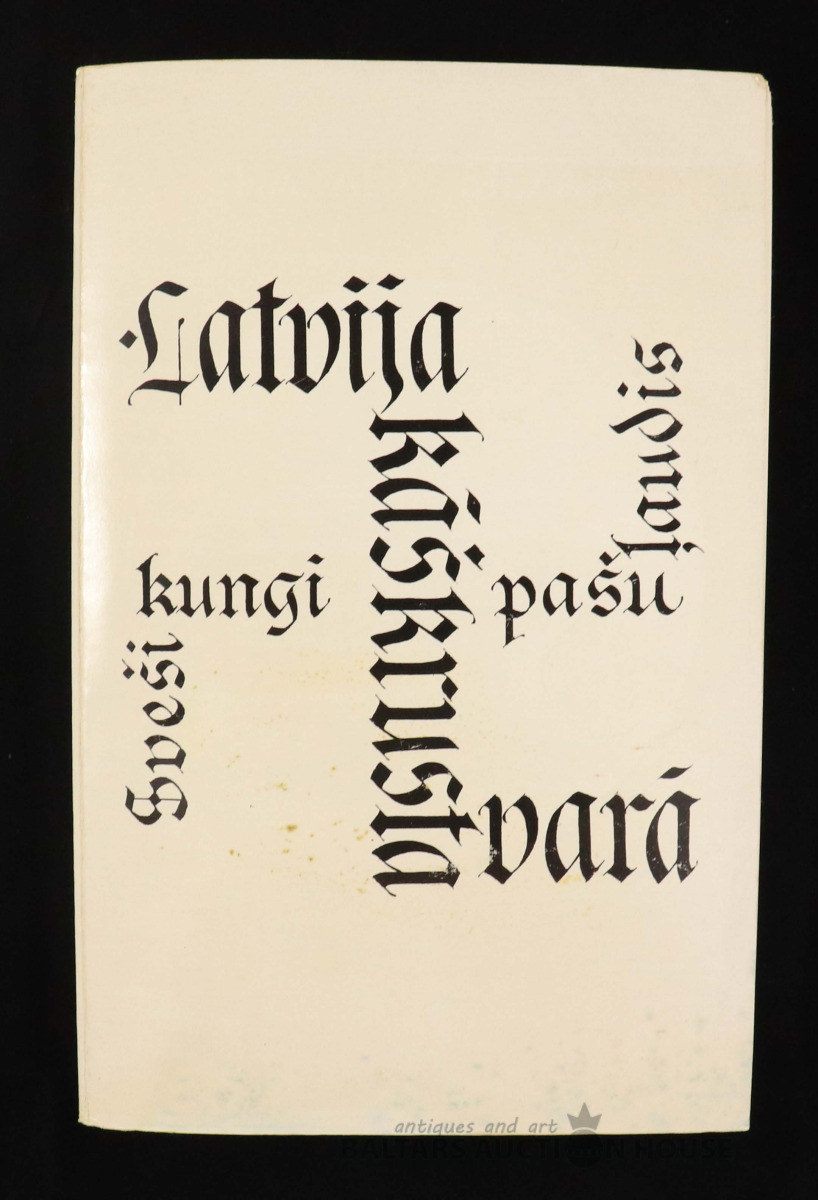 Latvija
kāškrusta
varā
Sveši
kungi
pašu
ļaudis
antiques and art
BALTARS AUCTION HOUSE